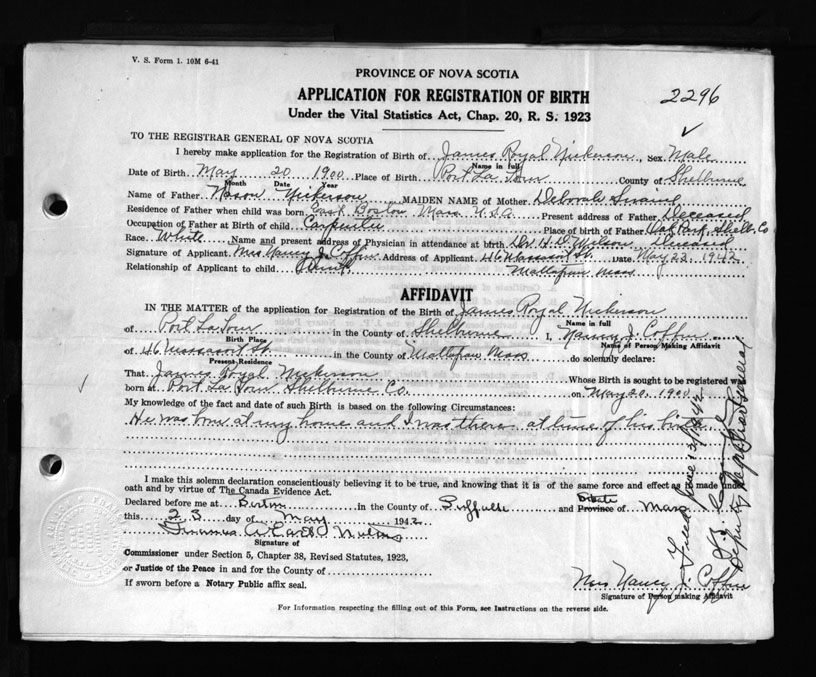 V. S. Form 1. 10M 6-41
PROVINCE OF NOVA SCOTIA
APPLICATION FOR REGISTRATION OF BIRTH
2296
Under the Vital Statistics Act, Chap. 20, R. S. 1923
TO THE REGISTRAR GENERAL OF NOVA SCOTIA
I hereby make application for the Registration of Birth of James Royal Nickerson, Sex Male
Name in full
Date of Birth May 20 1900 Place of Birth Port La Tour County of Shelburne
Month Date Year
Name of Father Nickerson MAIDEN NAME of Mother Deborah
Residence of Father when child was born East Boston Mass U.S.A Present address of Father Deceased
Occupation of Father at Birth of child Carpenter Place of birth of Father Oak Park, Shelb. Co
Race White Name and present address of Physician in attendance at birth Dr. H. D Wilson, Deceased
Signature of Applicant Mrs Nancy J. Coffin Address of Applicant 46 St. May 22, 1942
Relationship of Applicant to child Aunt Mattapan Mass
AFFIDAVIT
IN THE MATTER of the application for Registration of the Birth of James Royal Nickerson
Name in full
of Port La Tour in the County of Shelburne I, Nancy J. Coffin
Birth Place Name of Person Making Affidavit
of 46 St. in the County of Mattapan Mass do solemnly declare:
Present Residence
That James Royal Nickerson Whose Birth is sought to be registered was
born at Port La Tour Shelburne Co. on May 20, 1900
My knowledge of the fact and date of such Birth is based on the following Circumstances:
He was born at my home and I was there at time of his birth.
I make this solemn declaration conscientiously believing it to be true, and knowing that it is of the same force and effect as if made under
oath and by virtue of The Canada Evidence Act.
Declared before me at Boston in the County of Suffolk and Province State of Mass
this 23 day of May 1942
Signature of
Commissioner under Section 5, Chapter 38, Revised Statutes, 1923,
or Justice of the Peace in and for the County of
If sworn before a Notary Public affix seal.
Mrs Nancy J. Coffin
Signature of Person making Affidavit
For Information respecting the filling out of this Form, see Instructions on the reverse side.
Filed June 12/1942
Deputy Registrar General